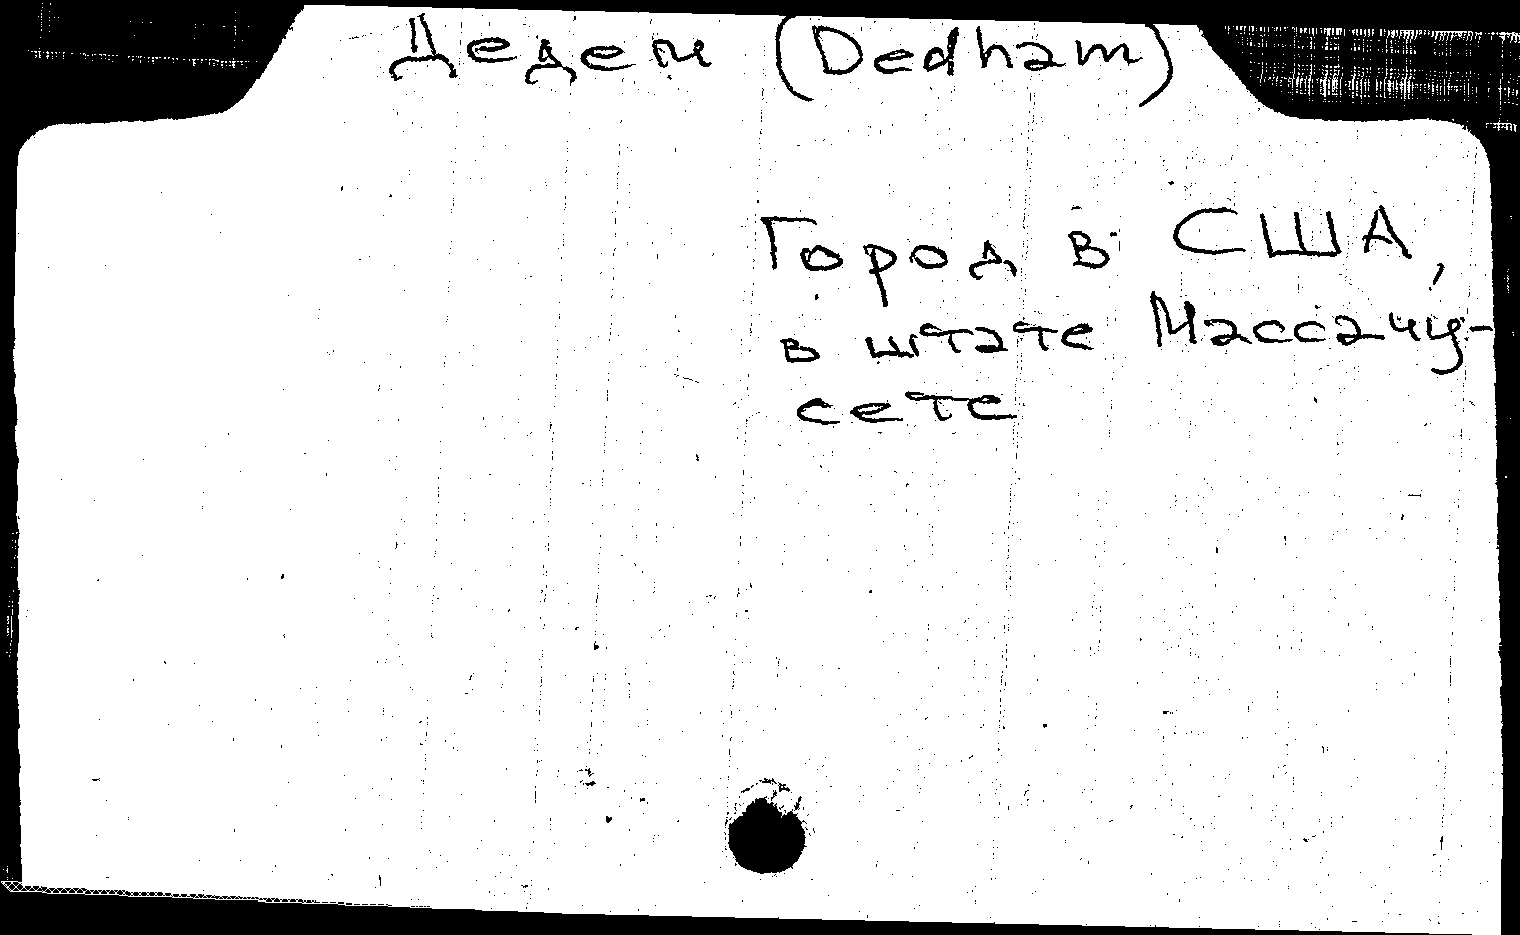 Дедем (Dedham)
Город в США,
в штате Массачу-
сетс